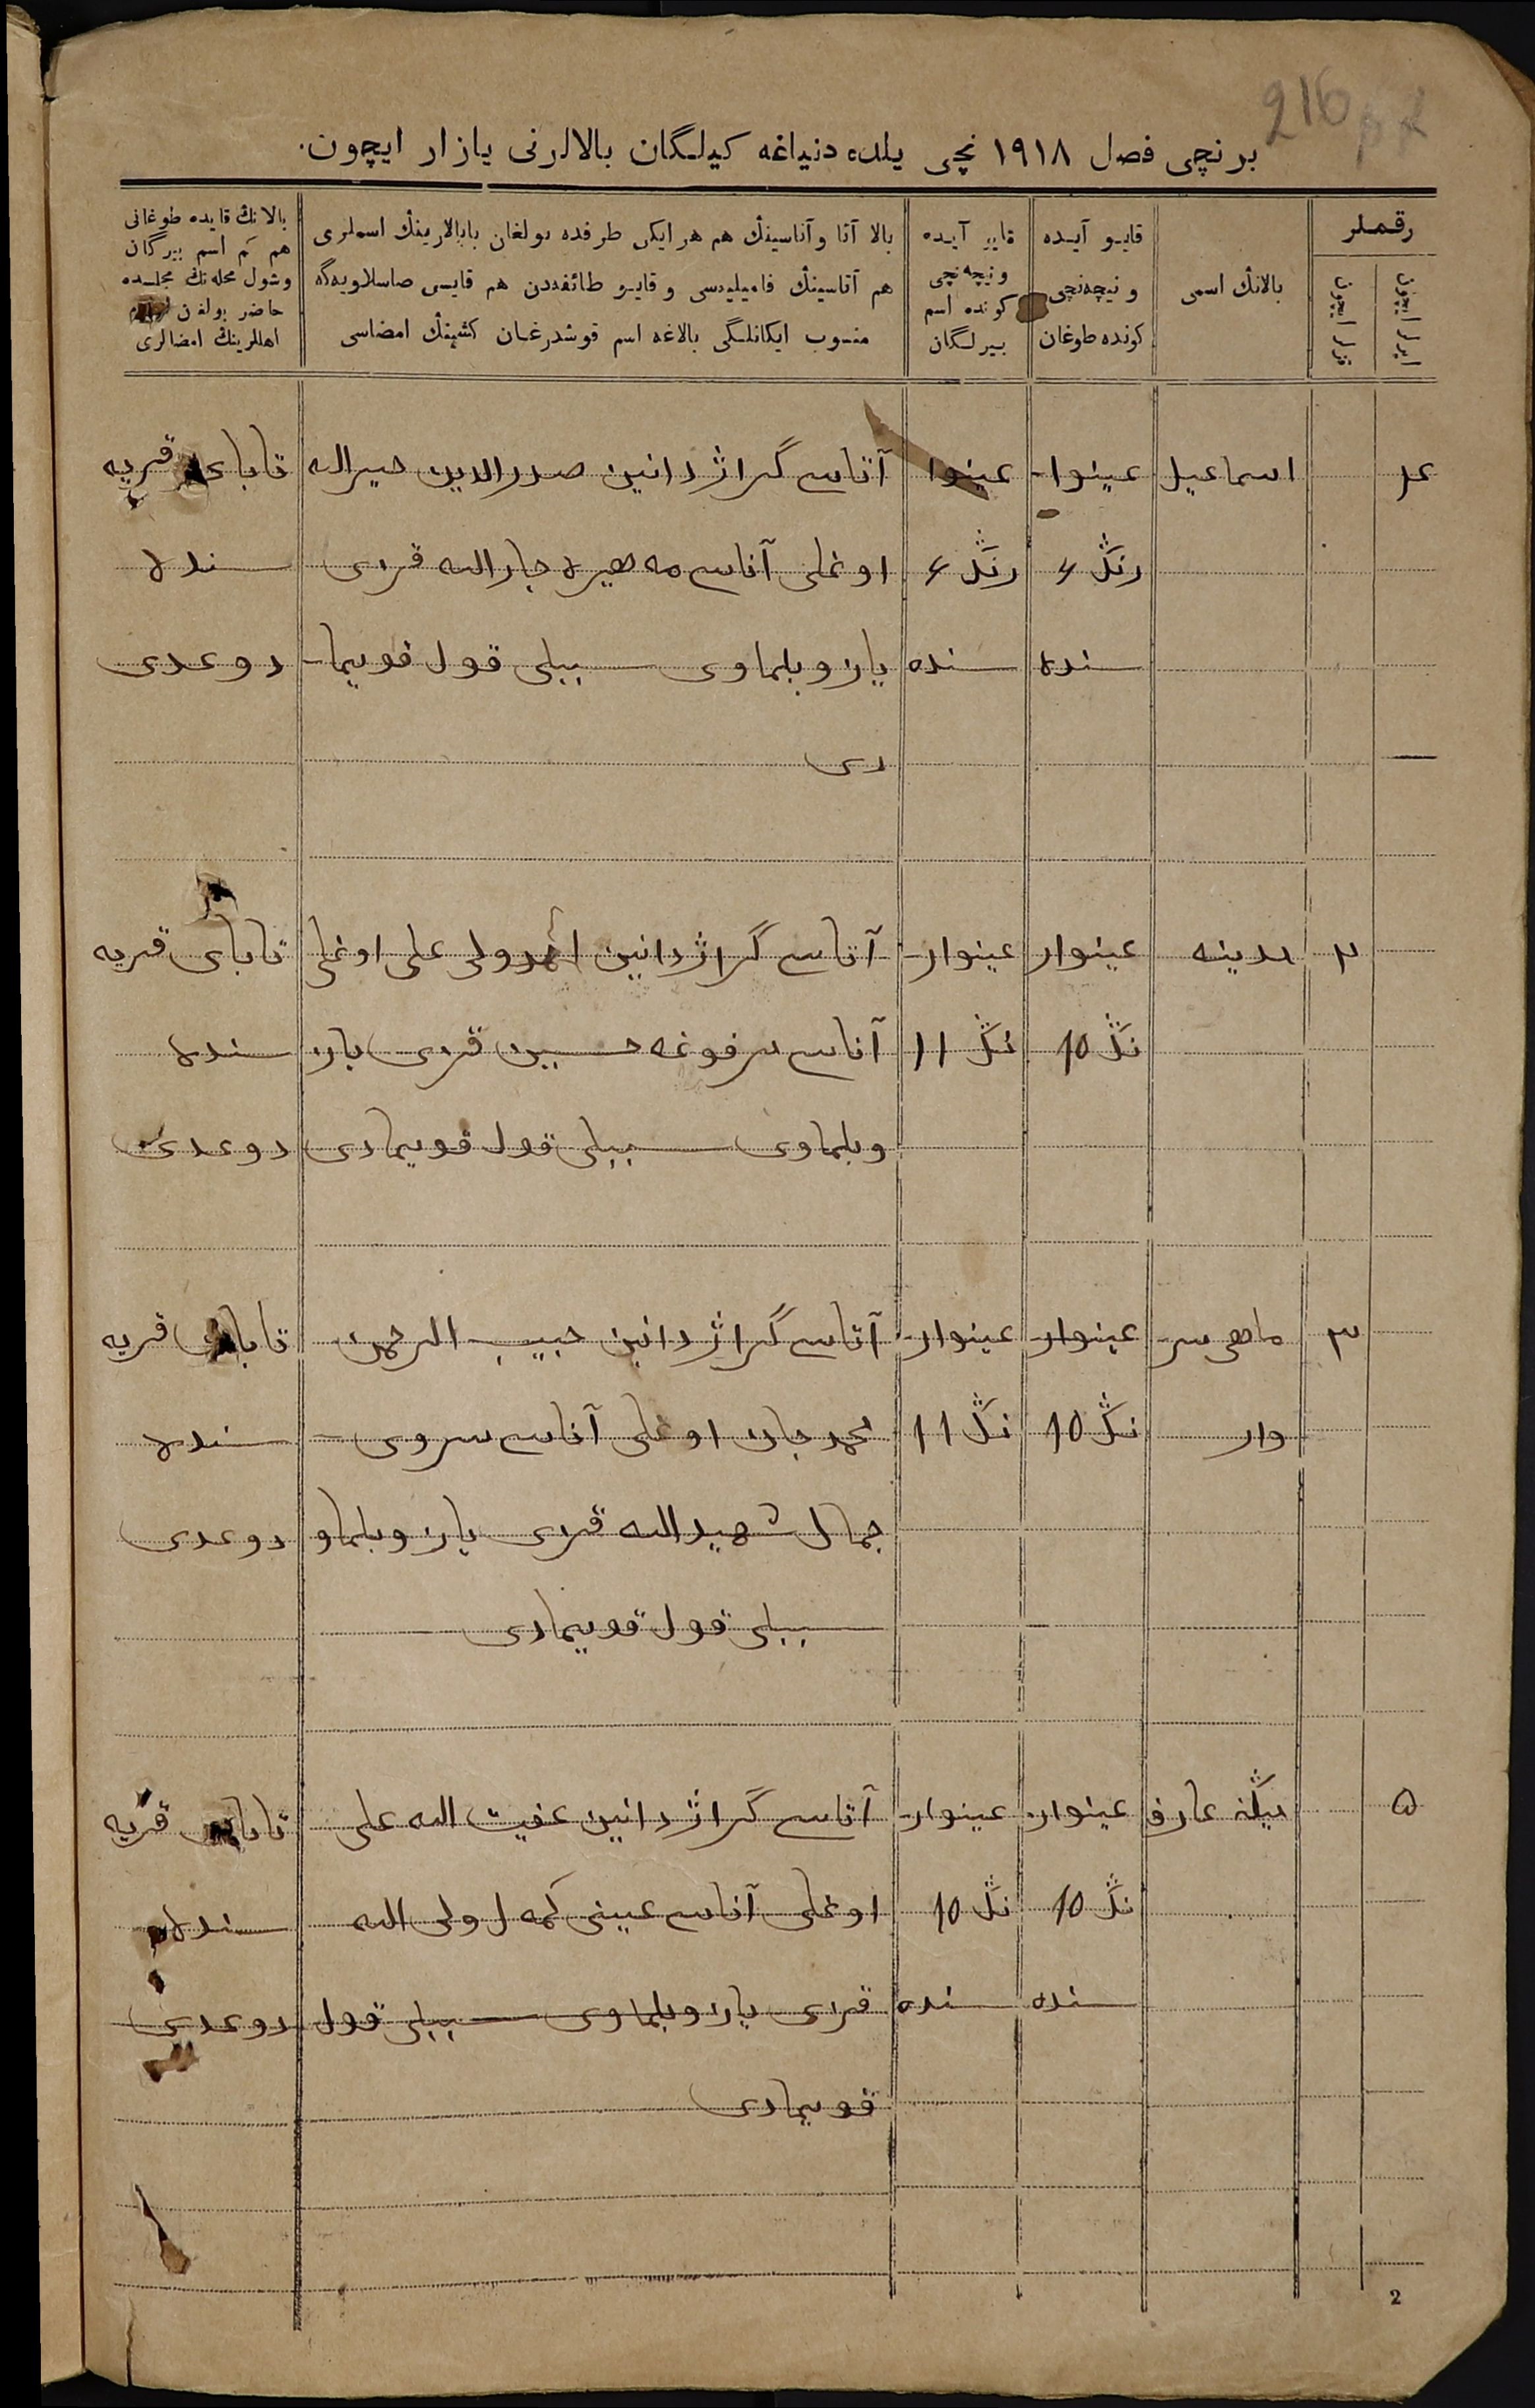 216
برنچی فصل ۱۹۱۸ نچی یلده دنیاغه کیلگان بالالرنی یازار ایچون.
رقملر
ایرلر ایچون
قزلر ایچون
بالانڭ اسمی
قایو آیده
و نیچه‌نچی
کونده طوغان
قایو آیده
و نیچه نچی
کونده اسم
بیرلگان
بالا آتا و آناسینڭ هم هر ایکی طرفده بولغان بابالارینڭ اسملری
هم آتاسینڭ فامیلیه‌سی و قایو طائفه‌دن هم قایسی صاسلاویه‌گه
منسوب ایکانلگی بالاغه اسم قوشدرغان کشینڭ امضاسی
بالانڭ قایده طوغانی
هم کم اسم بیرگان
و شول محله‌نڭ مجلسده
حاضر بولغن
اهللرینڭ امضالری
اسماعیل
عینوا-
رنڭ ۴
سنده
عینوا
رنڭ ۴
سنده
آتاسی گراژدانین صدرالدین خیرالله
اوغلی آناسی مه هیره جارالله قزی
یازو بلماوی سببلی قول قویما-
دی
تابای قریه
سنده
دوعدی
۲
مدینه
عینوار
نڭ 10
عینوار-
نڭ 11
آتاسی گراژدانین احمدولی علی اوغلی
آناسی مرفوغه حسین قزی یاز
و بلماوی سببلی قول قویمادی
تابای قریه
سنده
دوعدی
۳
ماهی سر-
وار
عینوار-
نڭ 10
عینوار-
نڭ 11
آتاسی گراژدانین حبیب الرحمن
محمد جان اوغلی آناسی سروی-
جمال شهیدالله قزی یازو بلماو
سببلی قول قویمادی
تابای قریه
سنده
دوعدی
۵
عارف
عینوار-
نڭ 10
سنده
عینوار-
نڭ 10
سنده
آتاسی گراژدانین عفیت الله علی
اوغلی آناسی عینی کمه ل ولی الله
قزی یازو بلماوی سببلی قول
قویمادی
تابای قریه
سنده
دوعدی
2